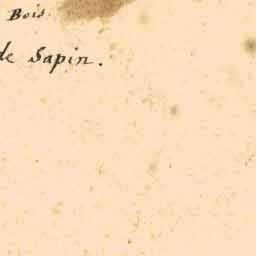 Bois
de Sapin.